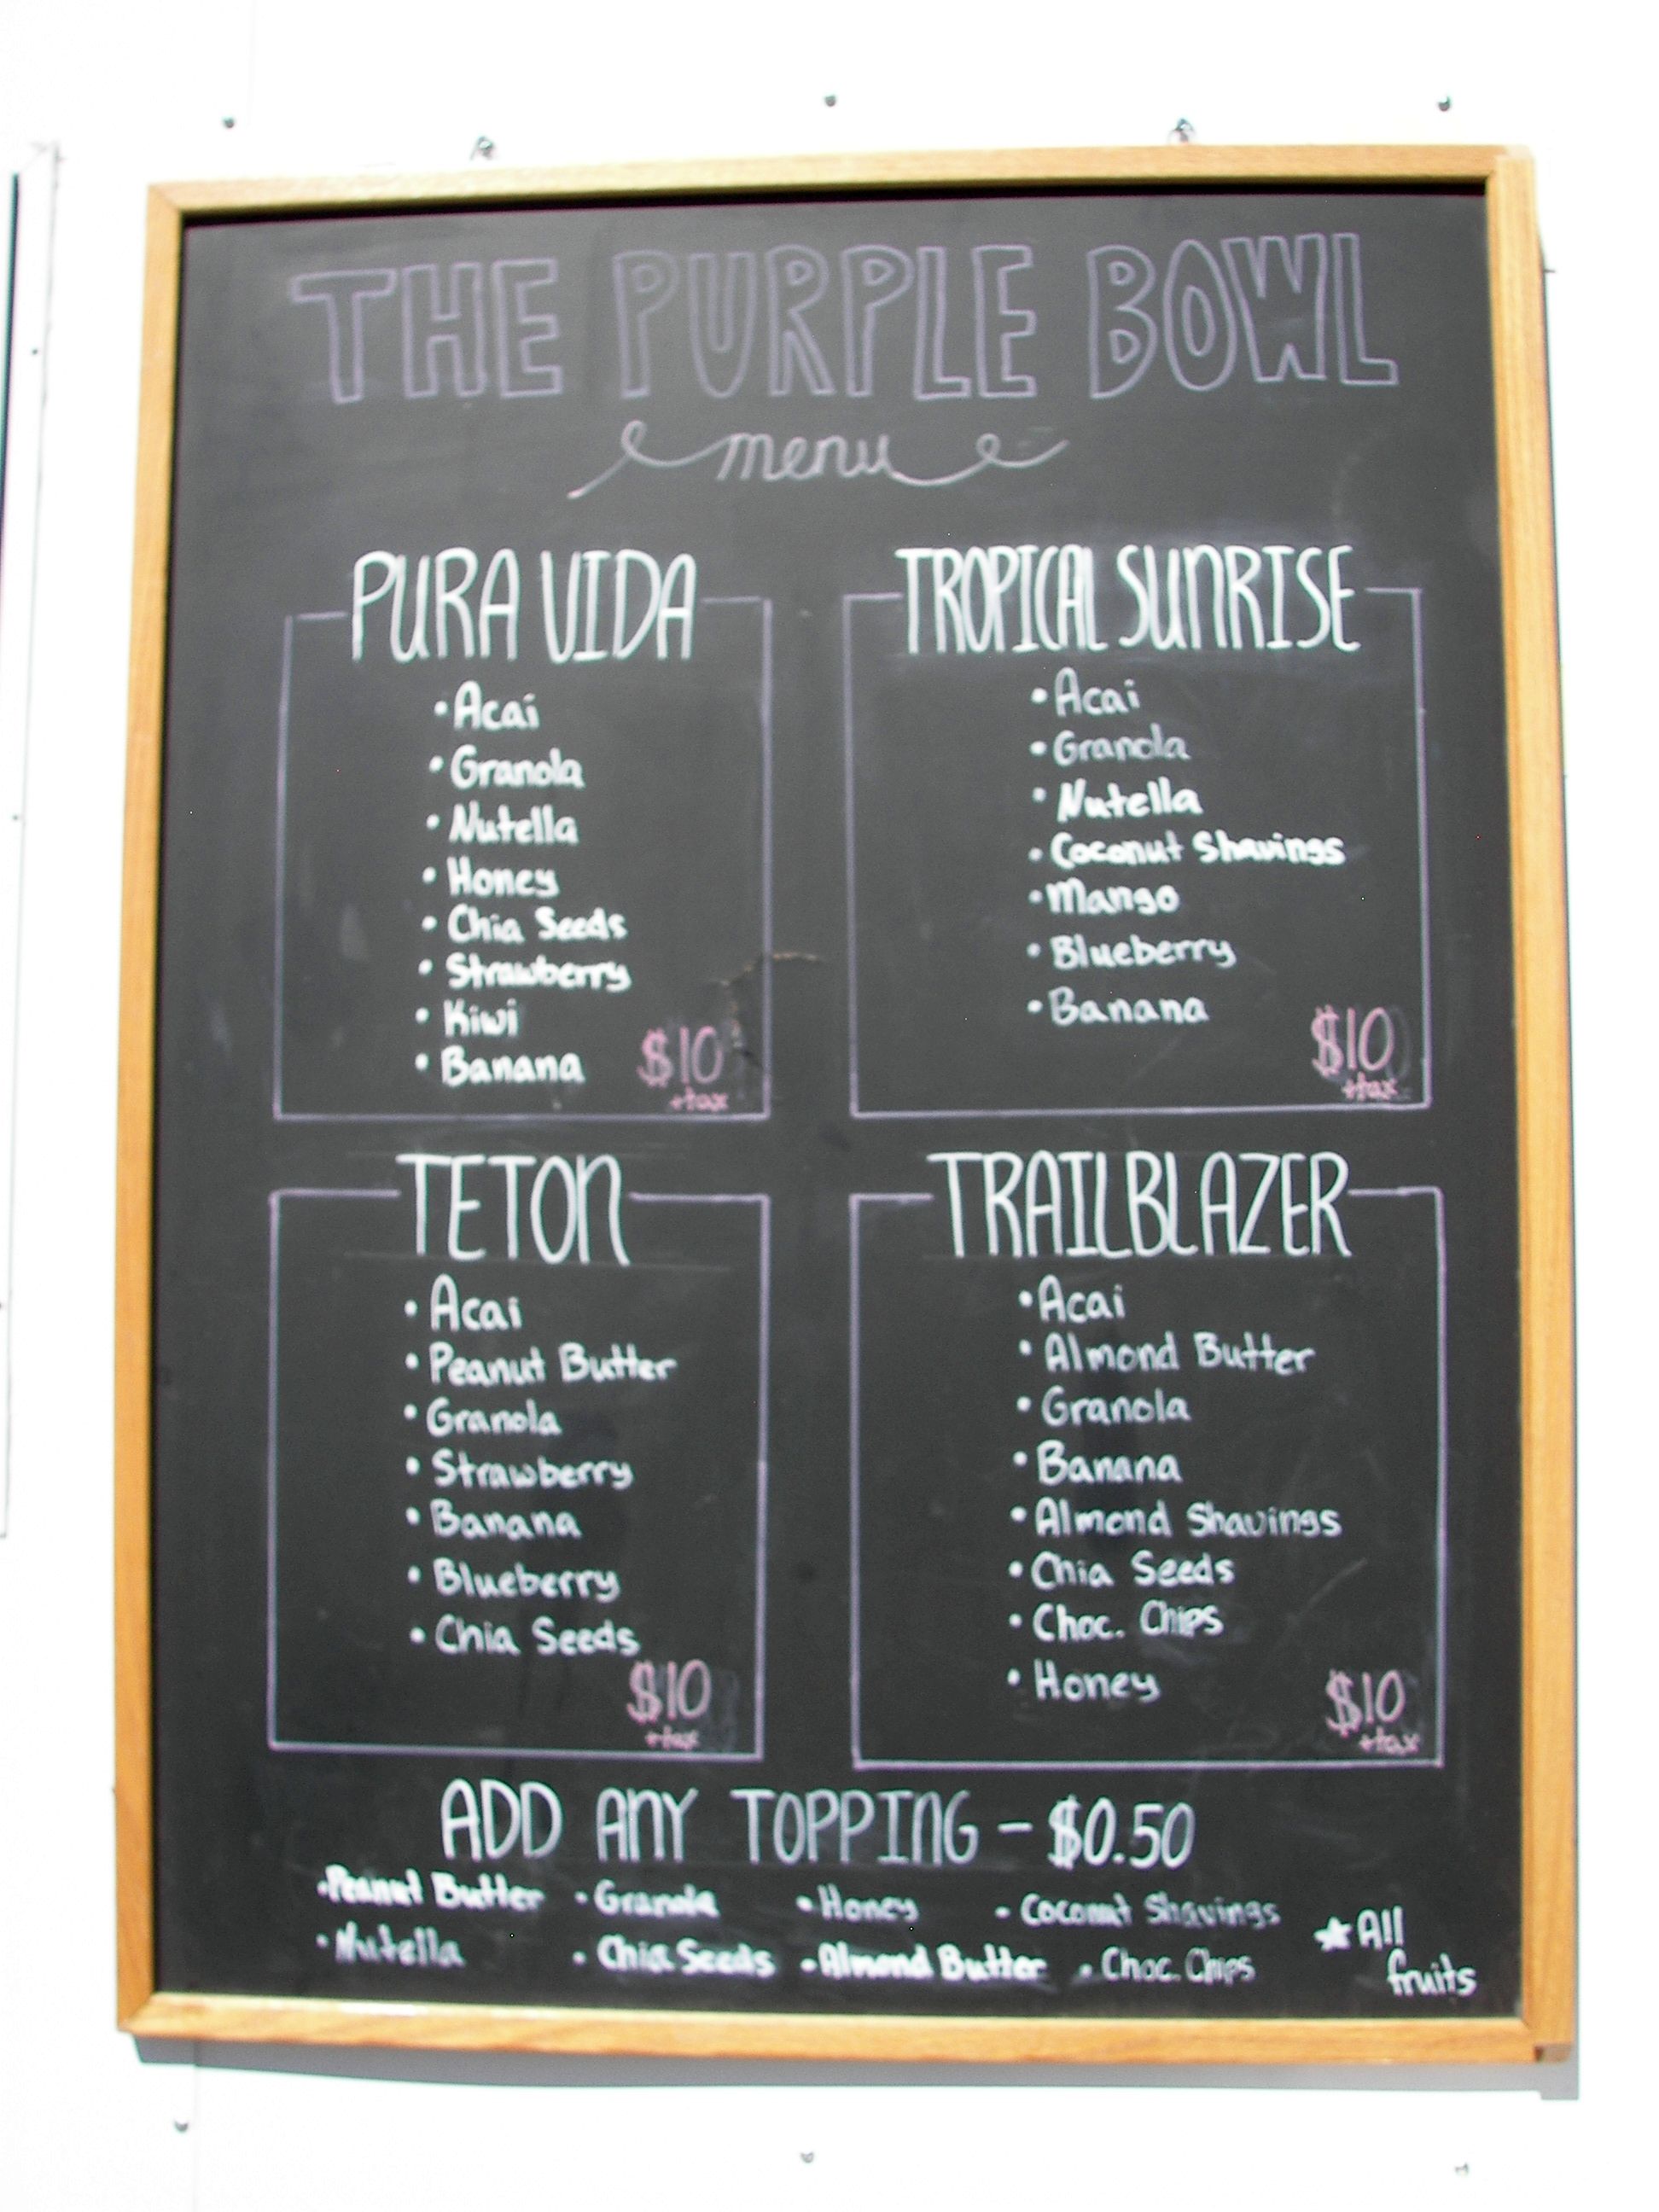 THE PURPLE BOWL
menu
PURA VIDA
• Acai
• Granola
• Nutella
• Honey
• Chia Seeds
• Strawberry
• Kiwi
• Banana
$10
+tax
TROPICAL SUNRISE
• Acai
• Granola
• Nutella
• Coconut Shavings
• Mango
• Blueberry
• Banana
$10
+tax
TETON
• Acai
• Peanut Butter
• Granola
• Strawberry
• Banana
• Blueberry
• Chia Seeds
$10
+tax
TRAILBLAZER
• Acai
• Almond Butter
• Granola
• Banana
• Almond Shavings
• Chia Seeds
• Choc. Chips
• Honey
$10
+tax
ADD ANY TOPPING - $0.50
• Peanut Butter • Granola • Honey • Coconut Shavings
• Nutella • Chia Seeds • Almond Butter • Choc. Chips
★ All
fruits